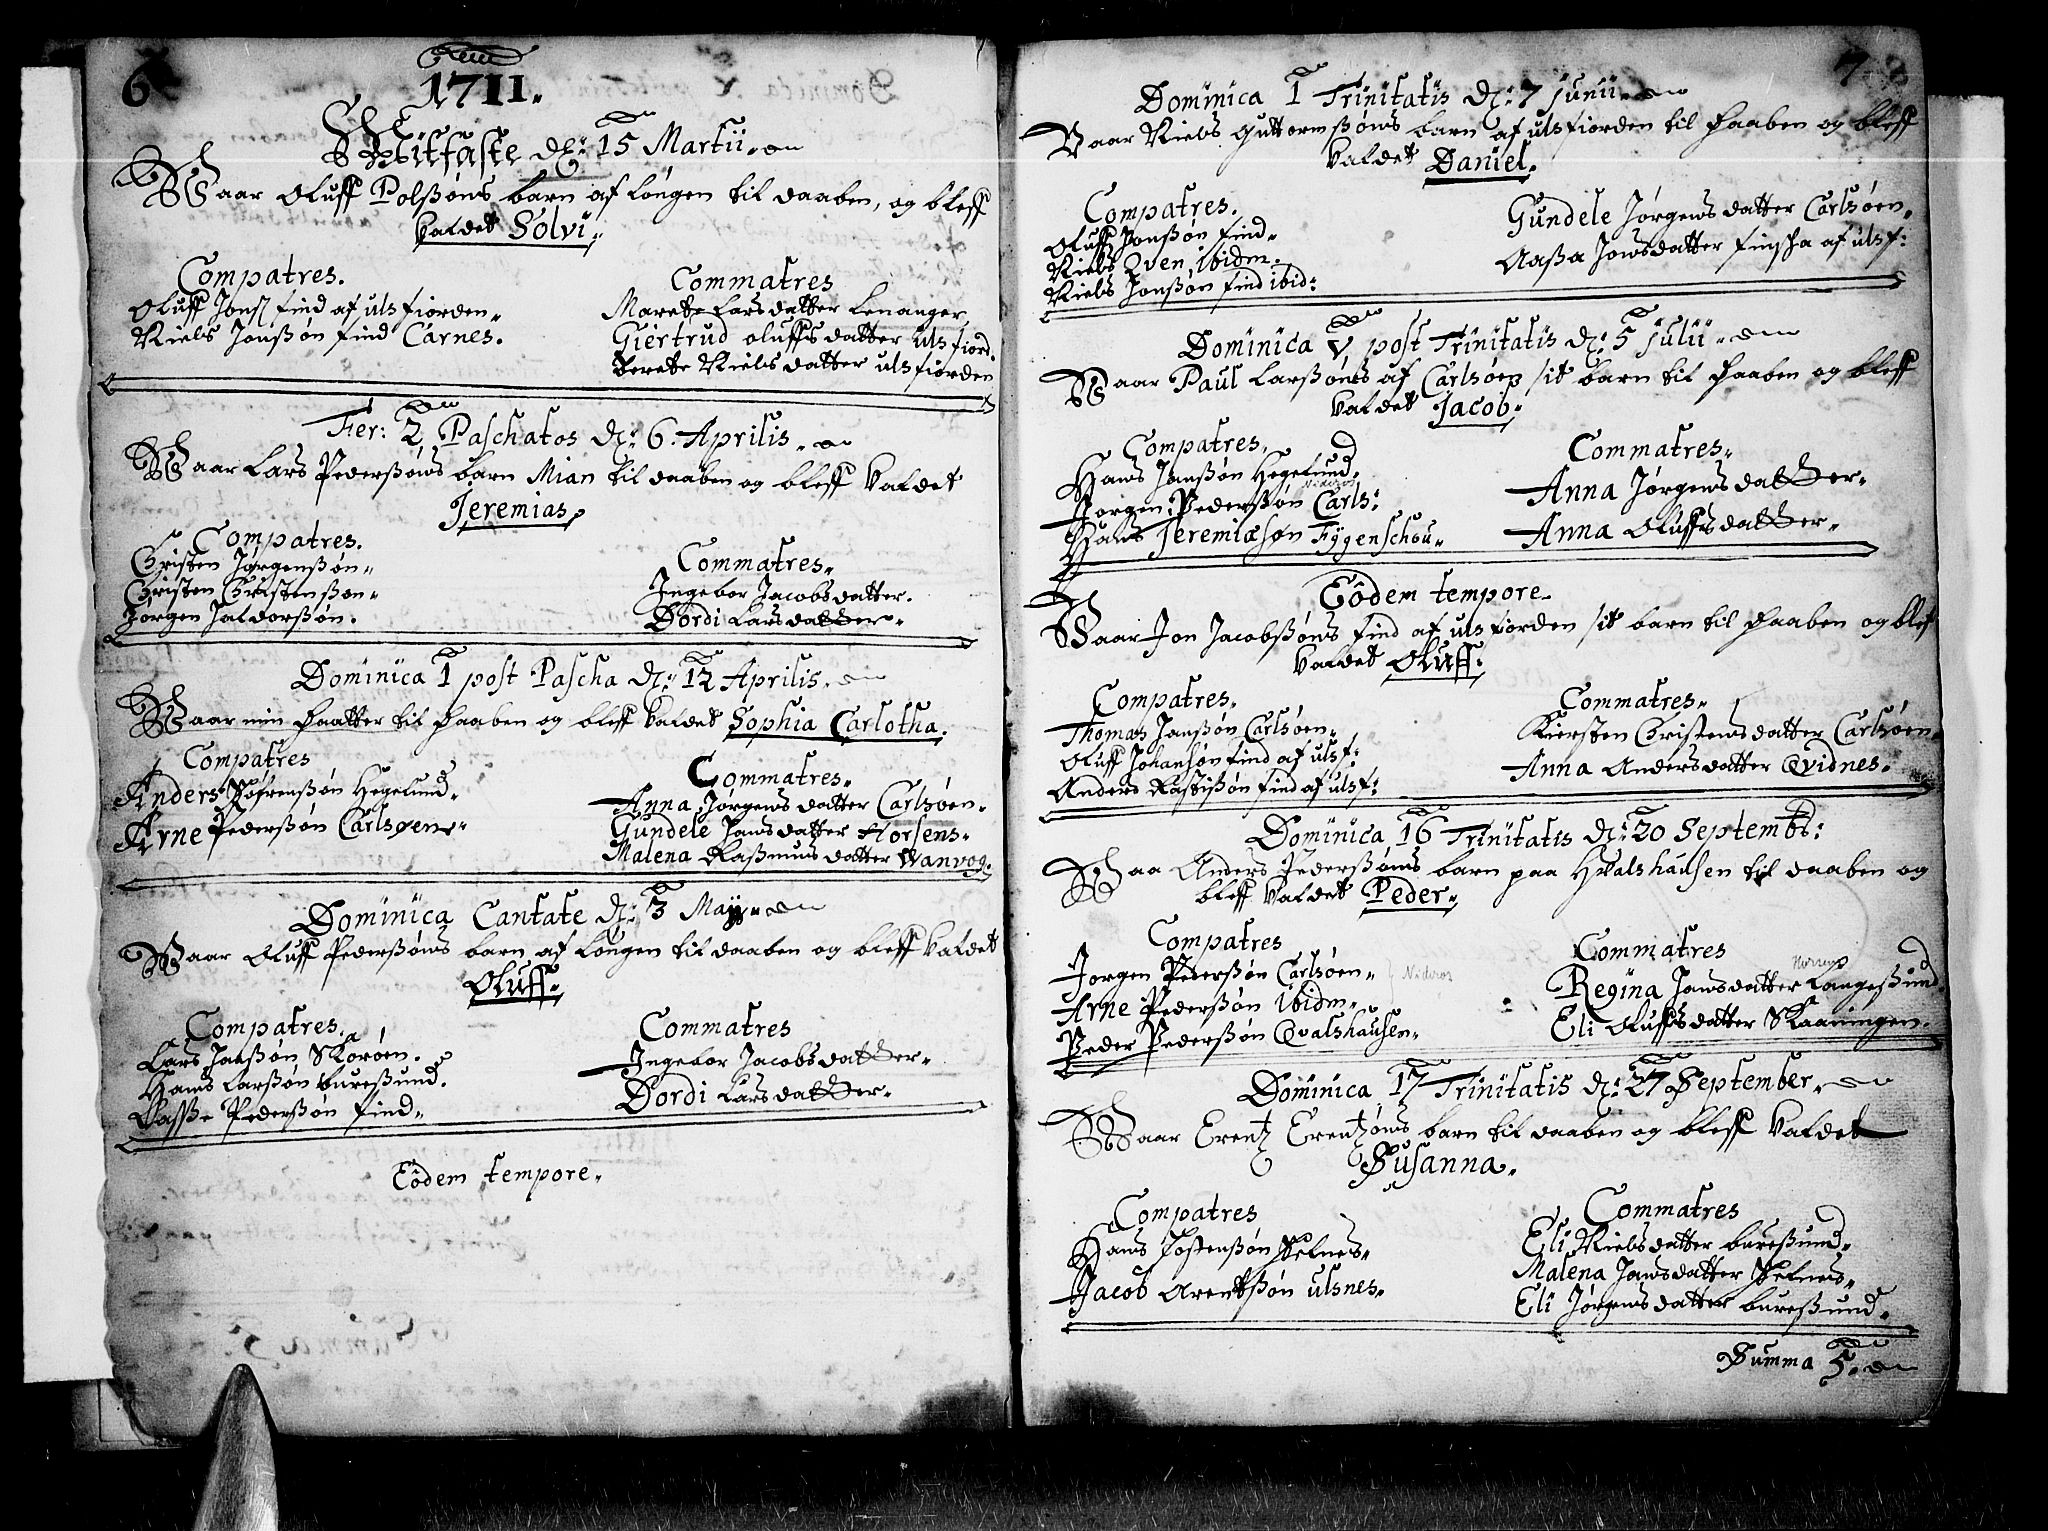 6
Anno
1711.
Mitfaste d: 15 Martii.
Waar Oluff Polssøns barn af Lóngen til daaben, og bleff
kaldet Solvi.
Compatres.
Oluff Jonss find af ulsfiorden.
Niels Jonssøn find Carnes.
Commatres
Marete Larsdatter Lenanger,
Giertrud oluffsdatter ulsfiord.
Berete Nielsdatter ulsfiorden
Fer: 2 Paschatos d: 6. Aprilis.
Waar Lars Pederssøns barn Mian til daaben og bleff kaldet
Jeremias.
Compatres.
Christen Jørgenssøn.
Christen Christenssøn.
Jørgen Haldorssøn.
Commatres.
Ingebor Jacobsdatter.
Dordi Larsdatter.
Dominica 1 post Pascha d: 12 Aprilis.
Waar min Daatter til daaben og bleff kaldet Sophia Carlotha.
Compatres
Anders Hegelund.
Arne Pederssøn Carlsøen.
Commatres.
Anna Jørgensdatter Carlsøen.
Gundele Jansdatter Horsens.
Malena Rassmusdatter Wanvog.
Dominica Cantate d: 3 May.
Waar Oluff Pederssøns barn af Lóngen til daaben og bleff kaldet
Oluff.
Compatres.
Lars Janssøn Skorøen.
Hans Larssøn buressund.
Passe Pederssøn find.
Commatres
Ingebor Jacobsdatter.
Dordi Larsdatter.
Eódem tempore.
7
Dominica 1 Trinitatis d: 7 junii.
Waar Niels Guttormssøns barn af ulsfiorden til daaben og bleff
kaldet Daniel.
Compatres.
Oluff Jonssøn find.
Niels Qven, ibidm.
Niels Jonssøn find ibid:
Gundele Jørgensdatter Carlsøen.
Aassa Jonsdatter finsha af ulsf:
Dominica V post Trinitatis d: 5 julii.
Waar Paul Larssøns af Carlsøen sit barn til daaben og bleff
kaldet Jacob.
Compatres.
Hans Janssøn Hegelund.
Nideros
Jørgen Pederssøn Carls:
Hans Jeremiæsøn Fygenschou.
Commatres.
Anna Jørgensdatter.
Anna Oluffsdatter.
Eódem tempore.
Waar Jon Jacobssøns find af ulsfiorden sit barn til daaben og blef
kaldet Oluff.
Compatres.
Thomas Janssøn Carlsøen.
Oluff Johansøn find af ulsf:
Anders Rastissøn find af ulsf:
Commatres.
Kiersten Christensdatter Carlsøen.
Anna Andersdatter Qvidnes.
Dominica 16 Trinitatis d: 20 Septemb:
Waa Anders Pederssøns barn paa Hvalshausen til daaben og
bleff kaldet Peder.
Compatres
Jorgen Pederssøn Carlsøen.
Nideros
Arne Pederssøn ibidm.
Peder Pederssøn Qvalshausen.
Commatres
Regina Jansdatter Langessund
Eli Oluffsdatter Skaaningen.
Dominica 17 Trinitatis d: 27 September.
Waar Erentz Erentzøns barn til daaben og bleff kaldet
Susanna.
Compatres
Hans Jostenssøn Helnes.
Jacob Arentssøn ulsnes.
Commatres
Eli Nielsdatter buressund.
Malena Jansdatter Helnes.
Eli Jørgensdatter buressund.
Summa 5.